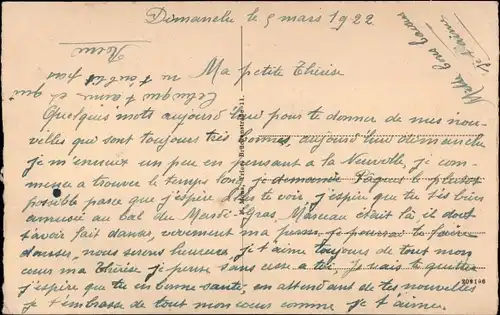 Dimanche le 5 mars 1922
Ma petite Thérèse
Quelques mots aujourd'hui pour te donner de mes nou-
velles qui sont toujours très bonnes, aujourd'hui dimanche
je m'ennuie un peu en pensant a la Neuville, je com-
mence a trouver le temps long, je demande Pâques le plutot
possible parce que j'espère te voir, j'espère que tu t'es bien
amusée au bal du Mardi-Gras, Marceau était là, il doit
savoir fait danser, vivement ma perm je pourrai te faire
danser, nous serons heureux, je t'aime toujours de tout mon
cœur ma Thérèse je pense sans cesse a toi, Je vais te quitter
j'espère que tu en bonne santé, en attendant de tes nouvelles
je t'embrasse de tout mon cœur comme je t'aime.
Celui qui t'aime et qui
ne t'oublie pas
Mille bons baisers
209196